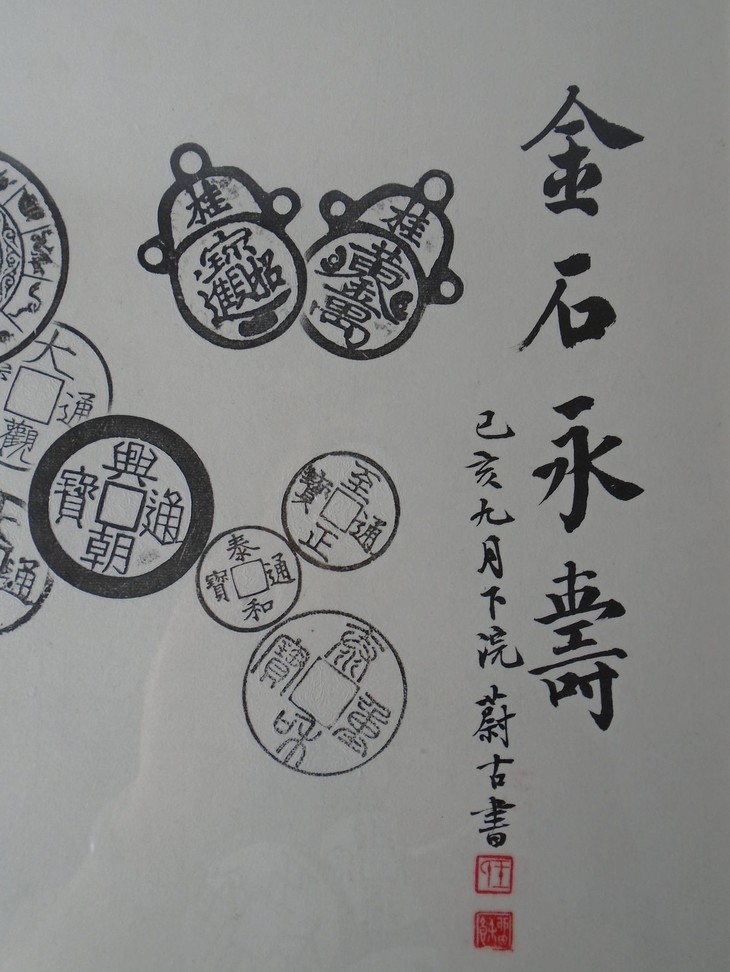 金石永壽
己亥九月下浣 蔚古書
桂
招財進寶
桂
黃金萬
大觀通
興朝通寶
至正通寶
泰和通寶
泰和重寶
通